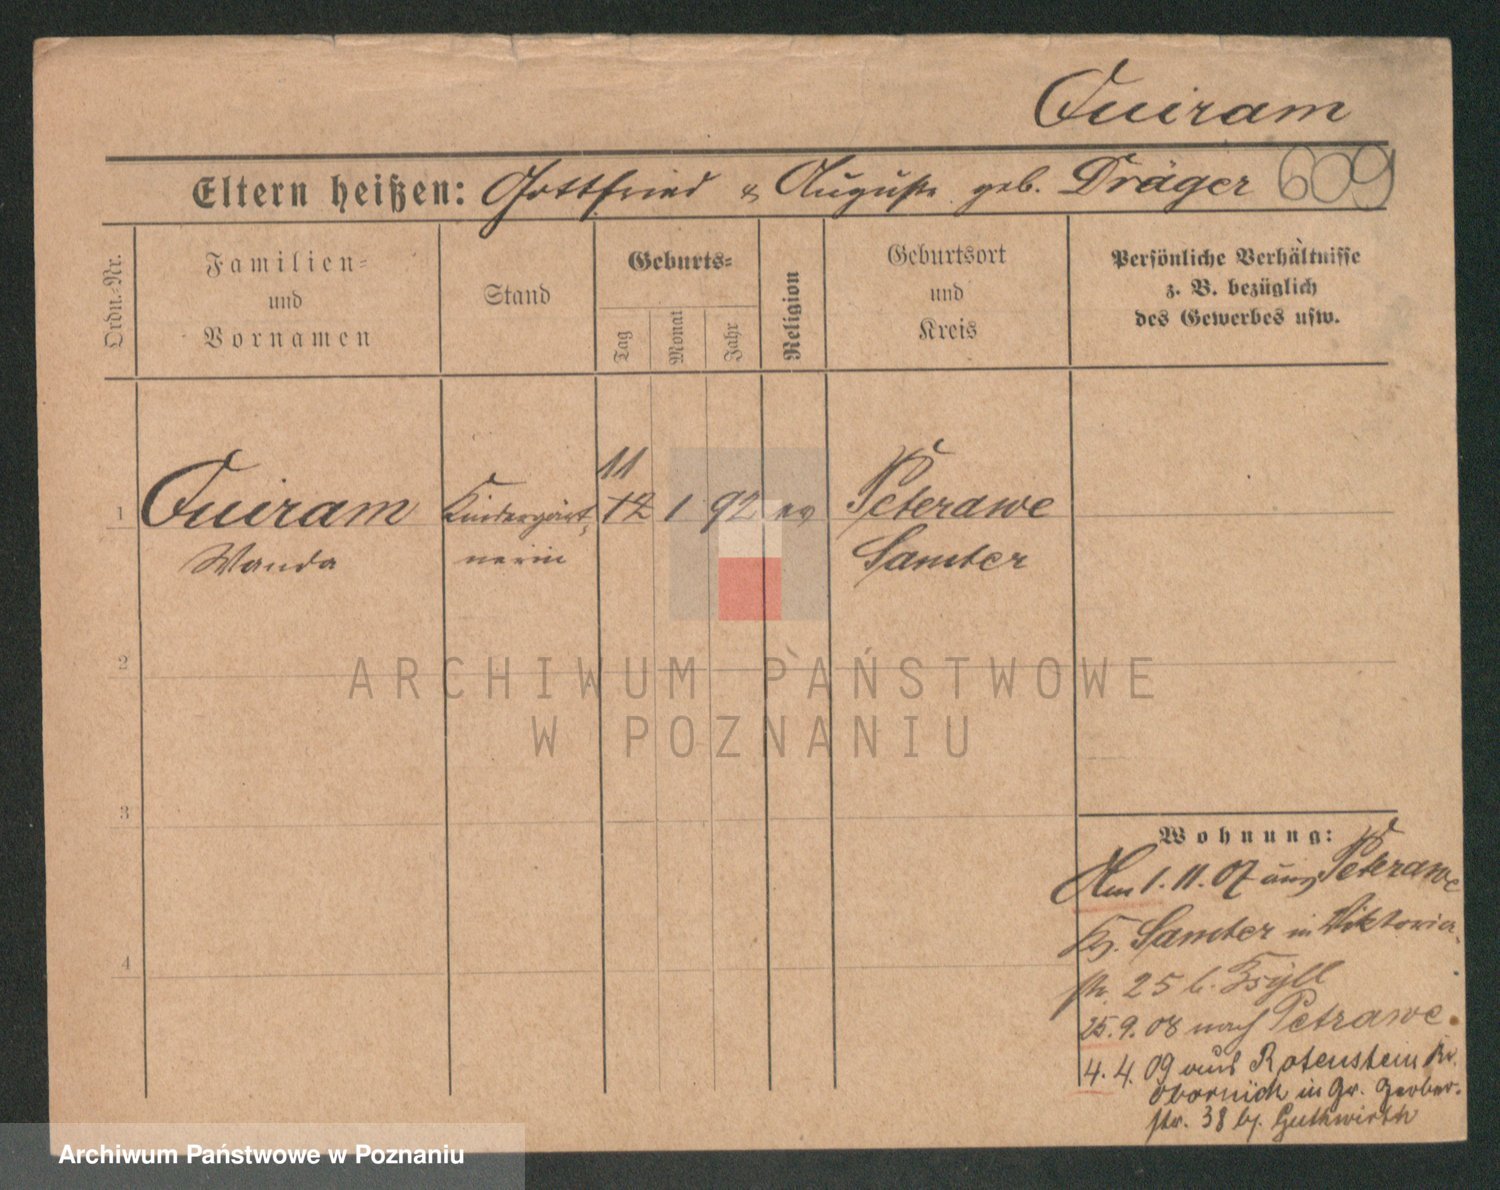 Quiram
Eltern heißen: Gottfried & Auguste geb. Dräger 609
Ordn.-Nr.
Familien-
und
Vornamen
Stand
Geburts-
Tag
Monat
Jahr
Religion
Geburtsort
und
Kreis
Persönliche Verhältnisse
z. B. bezüglich
des Gewerbes usw.
11
1 Quiram Kindergärt- 12 1 92 ev Peterawe
Wanda nerin Samter
2
3
4
Wohnung:
Am 1. 11. 07 aus Peterawe
Kr. Samter in Viktoria
str. 25 b.
25. 9. 08 nach Petrawe
4. 4. 09 aus Rotenstein Kr.
Obornick in Gr. Gerber-
str. 38 bj. Guthwirth
ARCHIWUM PAŃSTWOWE
W POZNANIU
Archiwum Państwowe w Poznaniu